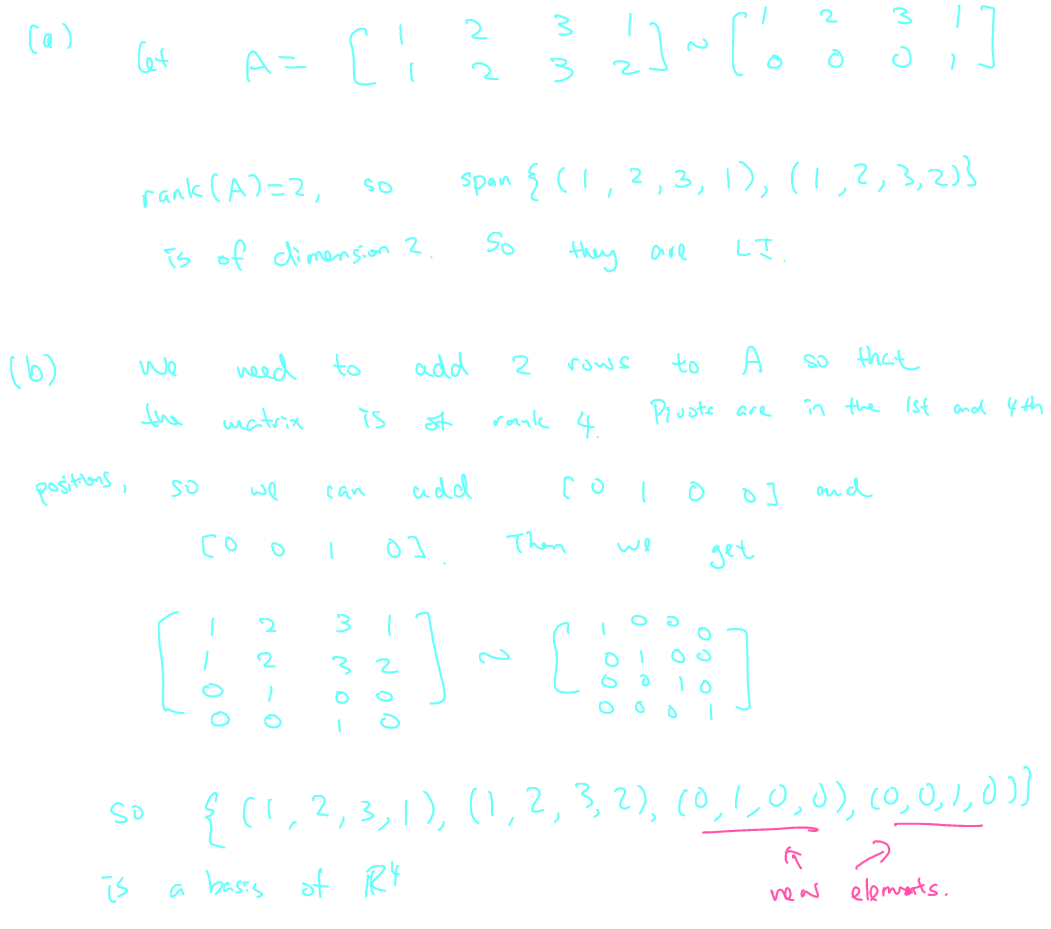 (a) Let A = [ 1 2 3 1 ] ~ [ 1 2 3 1 ]
[ 1 2 3 2 ] [ 0 0 0 1 ]
rank(A)=2, so span { (1, 2, 3, 1), (1, 2, 3, 2)}
is of dimension 2. So they are LI.
(b) We need to add 2 rows to A so that
the matrix is of rank 4. Pivots are in the 1st and 4th
positions, so we can add [ 0 1 0 0 ] and
[0 0 1 0]. Then we get
[ 1 2 3 1 ] ~ [ 1 0 0 0 ]
[ 1 2 3 2 ] [ 0 1 0 0 ]
[ 0 1 0 0 ] [ 0 0 1 0 ]
[ 0 0 1 0 ] [ 0 0 0 1 ]
So { (1, 2, 3, 1), (1, 2, 3, 2), (0, 1, 0, 0), (0, 0, 1, 0)}
is a basis of ℝ⁴
new elements.